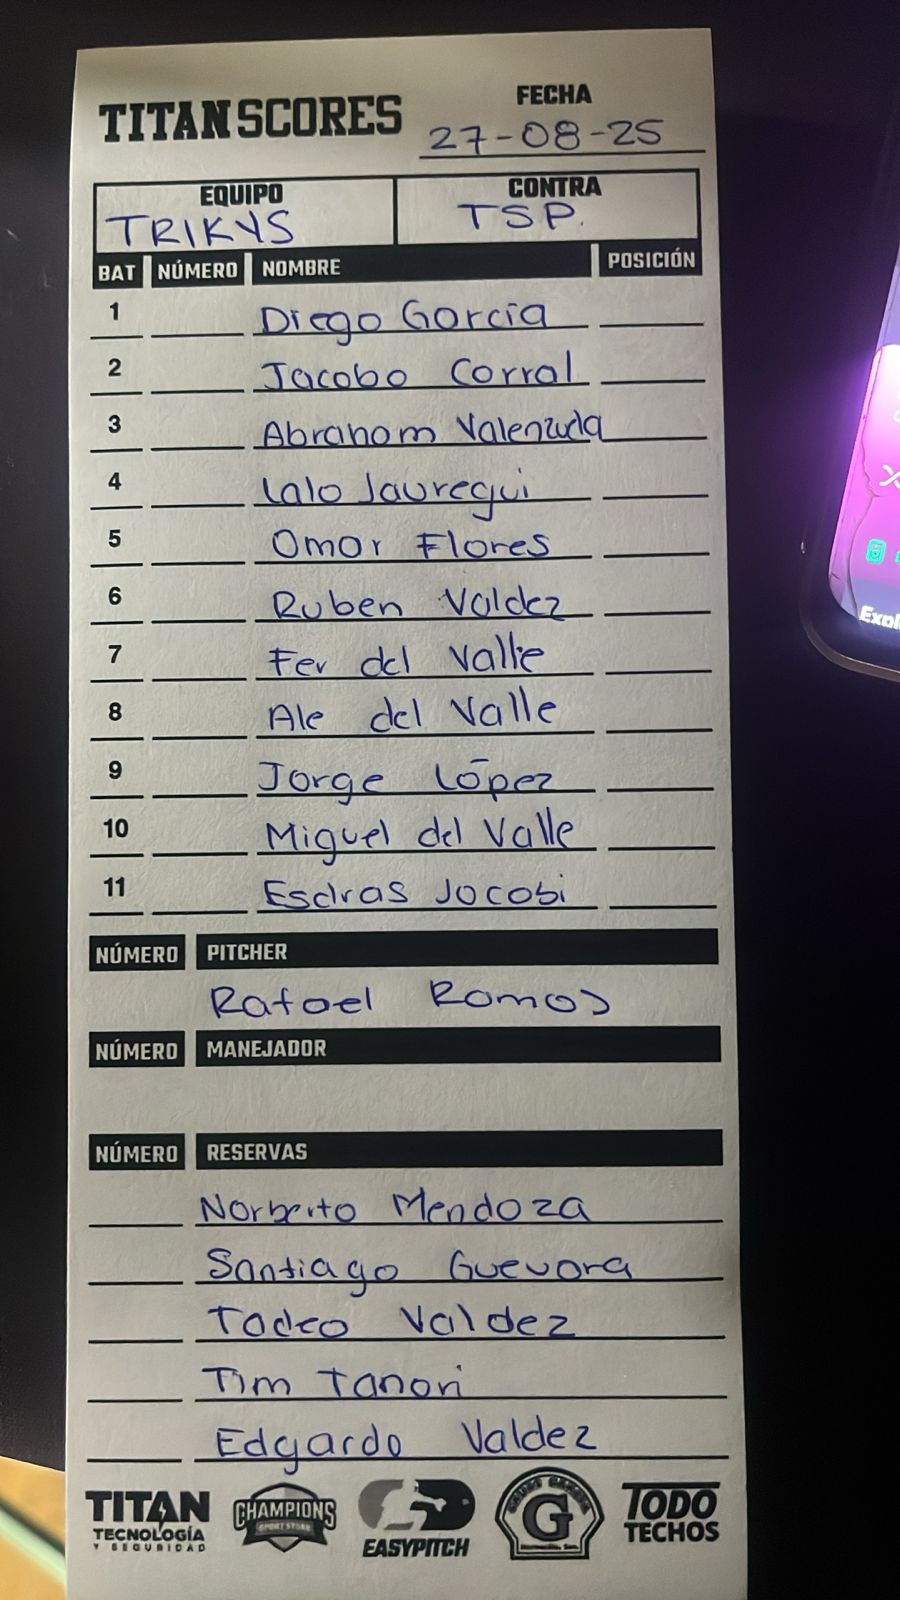 TITAN SCORES
FECHA
27-08-25
EQUIPO CONTRA
TRIKYS TSP.
BAT NÚMERO NOMBRE POSICIÓN
1 Diego García
2 Jacobo Corral
3 Abraham Valenzuela
4 Lalo Jauregui
5 Omar Flores
6 Ruben Valdez
7 Fer del Valle
8 Ale del Valle
9 Jorge López
10 Miguel del Valle
11 Esdras Jocobi
NÚMERO PITCHER
Rafael Ramos
NÚMERO MANEJADOR
NÚMERO RESERVAS
Norberto Mendoza
Santiago Guevara
Tadeo Valdez
Tim Tanori
Edgardo Valdez
TITAN CHAMPIONS TODO
TECNOLOGÍA SPORT STORE G TECHOS
Y SEGURIDAD EASYPITCH
Explo